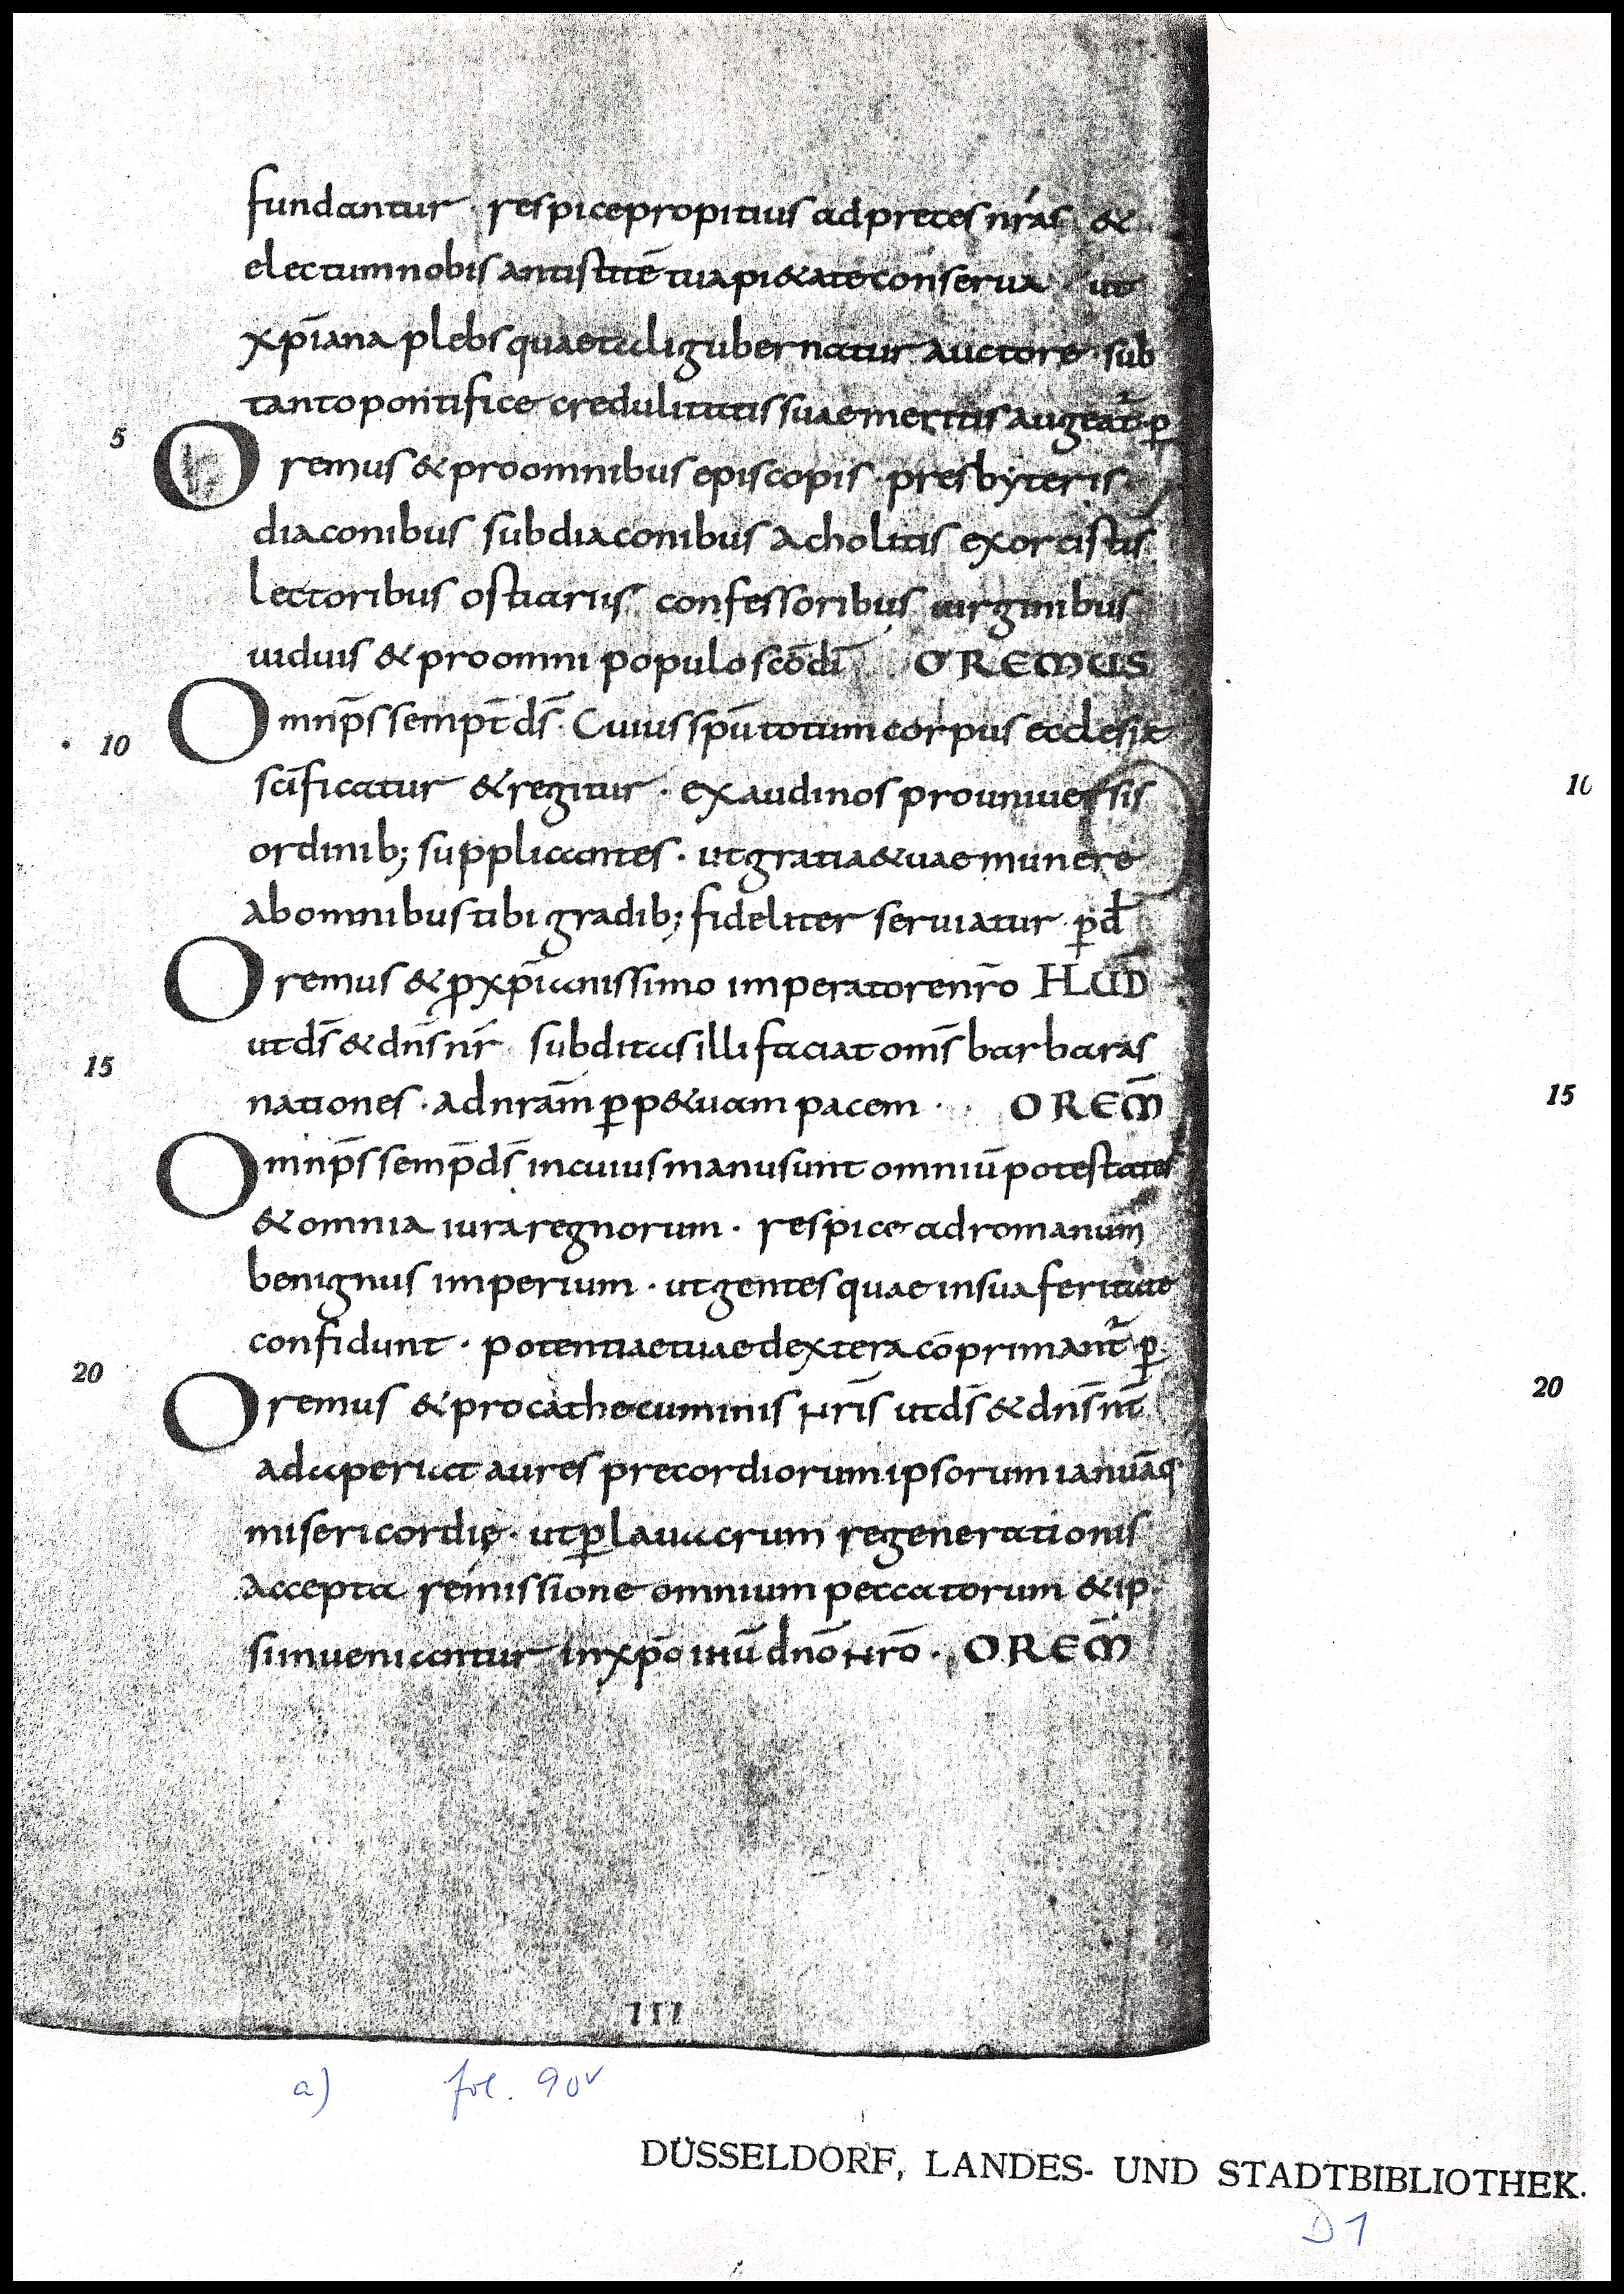 fundantur · respice propitius ad preces nr̄as &
electum nobis antistitē tua pi&ate conserua · ut
xp̄iana plebs quae tali gubernatur auctore · sub
tanto pontifice credulitatis suae meritis augeat̄ · ꝑ
5
Oremus & pro omnibus episcopis · presbyteris
diaconibus subdiaconibus acholitis exorcistis
lectoribus ostiariis confessoribus uirginibus
uiduis & pro omni populo sc̄o dī OREMUS
Omnp̄s semp̄t ds̄ · Cuius sp̄u totum corpus ecclesiae
10
10
sc̄ificatur & regitur · exaudi nos pro uniuersis
ordinib; supplicantes · ut gratia & uae munere
ab omnibus tibi gradib; fideliter seruiatur · ꝑ d̄
Oremus & ꝓ xp̄ianissimo imperatore nr̄o HLUD̄
ut ds̄ & dn̄s nr̄ subditas illi faciat om̄s barbaras
15
15
nationes · ad nr̄am ꝑp&uam pacem · OREM̄
Omnp̄s semp̄ ds̄ in cuius manu sunt omniū potestates
& omnia iura regnorum · respice ad romanum
benignus imperium · ut gentes quae in sua feritate
confidunt · potentiae tuae dextera cōprimant̄ · ꝑ
20
20
Oremus & pro cathecuminis nr̄is ut ds̄ & dn̄s nr̄
adaperiat aures precordiorum ipsorum ianuāq·
misericordię · ut ꝑ lauacrum regenerationis
accepta remissione omnium peccatorum & ip
si inueniantur in xp̄o ihū dn̄o nr̄o · OREM̄
111
a) fol. 90v
DÜSSELDORF, LANDES- UND STADTBIBLIOTHEK.
D 1